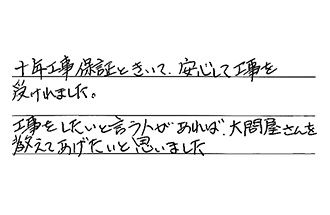 十年工事保証ときいて、安心して工事を
受けれました。
工事をしたいと言う人があれば、大問屋さんを
教えてあげたいと思いました